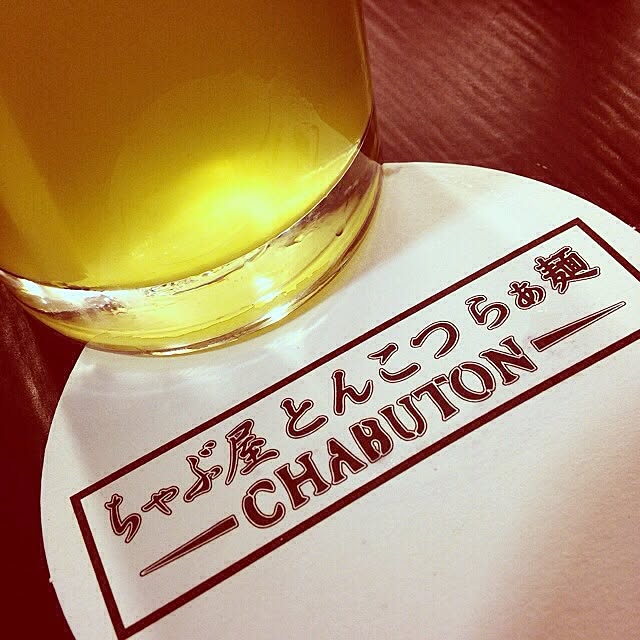 ちゃぶ屋 とんこつ らぁ麺
CHABUTON